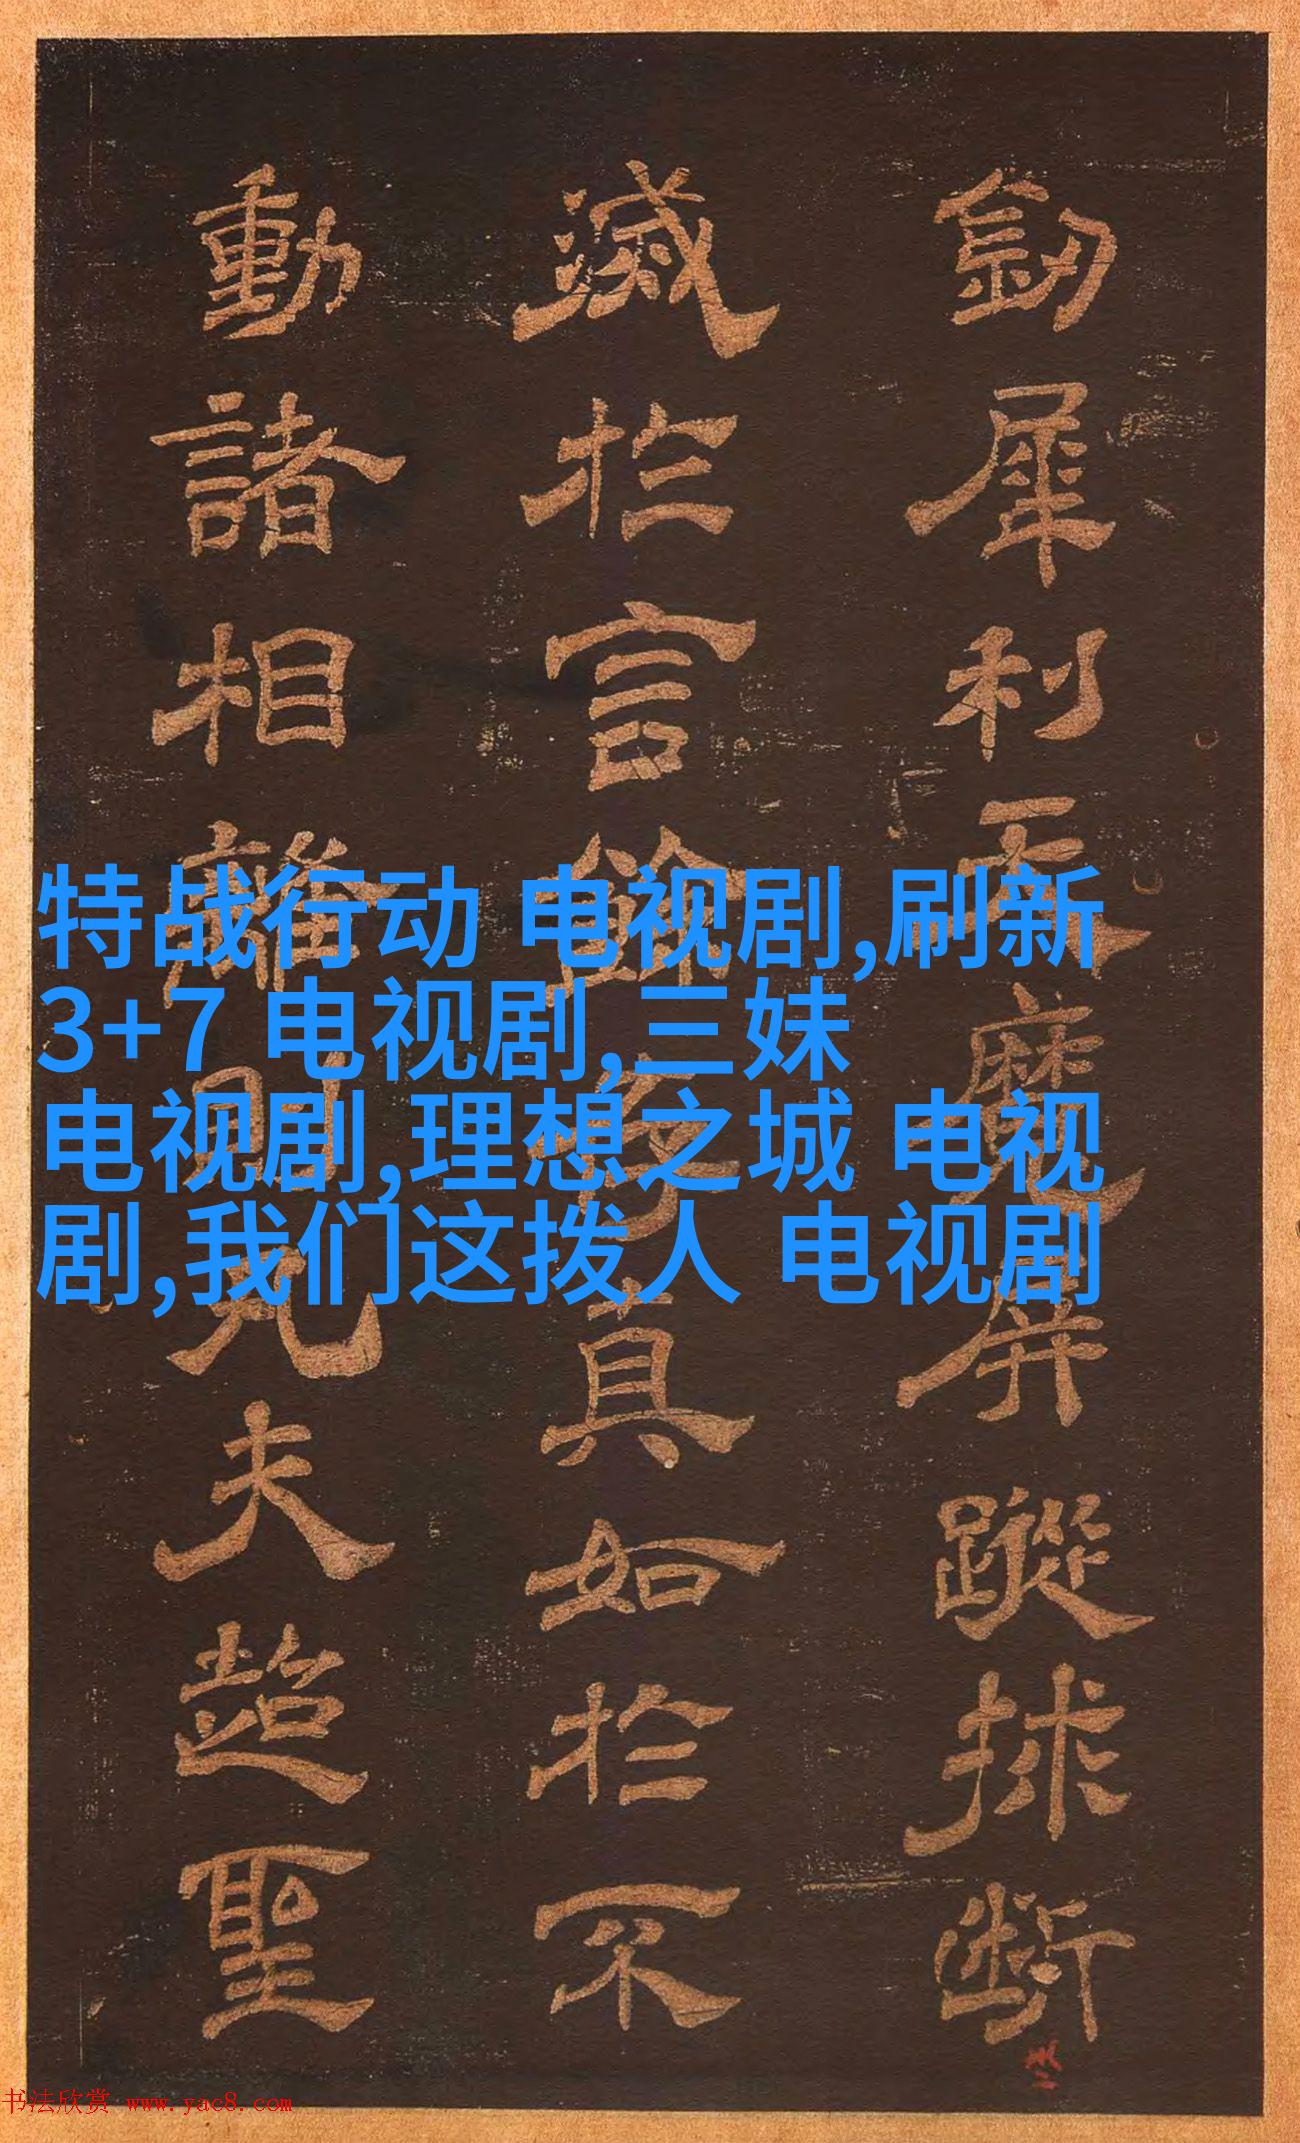 犀利天魔屏蹤排斷
滅於言
真如於不
動諸相離則凡夫超聖
特战行动 电视剧,刷新
3+7 电视剧,三妹
电视剧,理想之城 电视
剧,我们这拨人 电视剧
书法欣赏 www.yac8.com